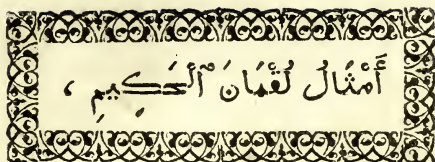 أَمْثَالُ لُقْمَانَ ٱلْحَكِيمِ ،